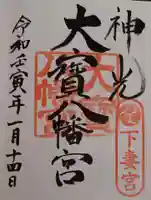 神光
下妻宮
大寳八幡宮
令和壬寅年一月十四日